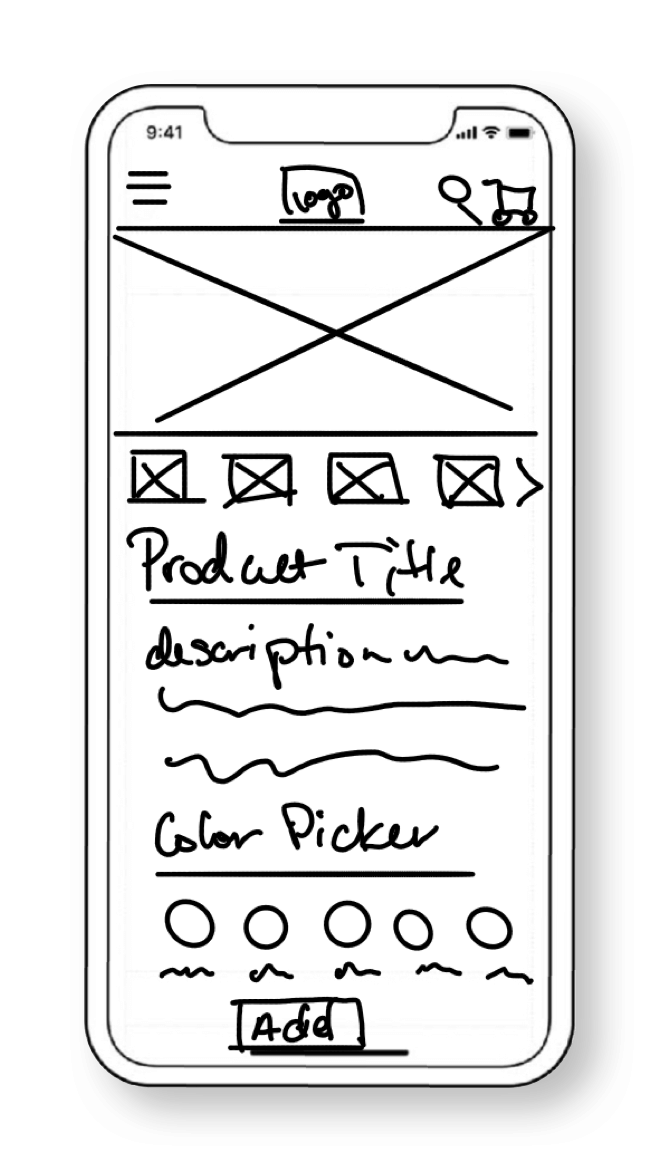 9:41
logo
Product Title
description
Color Picker
Add